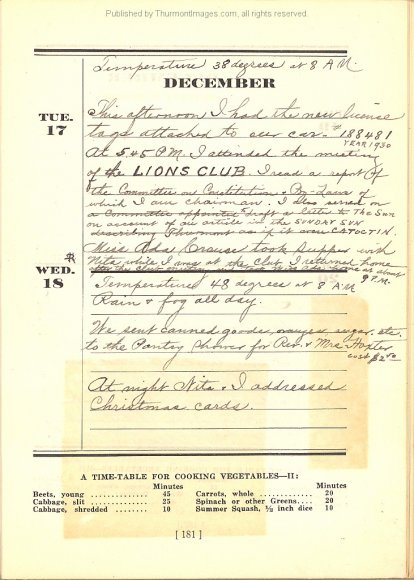 Published by ThurmontImages.com, all rights reserved.
Temperature 38 degrees at 8 A.M.
DECEMBER
TUE.
17
This afternoon I had the new license
tags attached to our car. # 188481
YEAR 1930
At 5.45 P.M. I attended the meeting
of the LIONS CLUB. I read a report of
the Committee on Constitution & By-Laws of
which I am chairman. I also served on
a Committee appointed draft a letter to The Sun
on account of an article in the SUNDAY SUN
describing Thurmont as if it were CATOCTIN.
Miss Ada Crouse took supper with
Nita while I was at the Club. I returned home
home at about
9 P.M.
WED.
18
Temperature 48 degrees at 8 A.M.
Rain & fog all day.
We sent canned goods, oranges, sugar, etc.
to the Pantry Shower for Rev. & Mrs. Hoxter
cost $2.40
At night Nita & I addressed
Christmas cards.
A TIME-TABLE FOR COOKING VEGETABLES—II:
Minutes Minutes
Beets, young .............. 45 Carrots, whole ............. 20
Cabbage, slit .............. 25 Spinach or other Greens.... 20
Cabbage, shredded ........ 10 Summer Squash, ½ inch dice 10
[ 181 ]